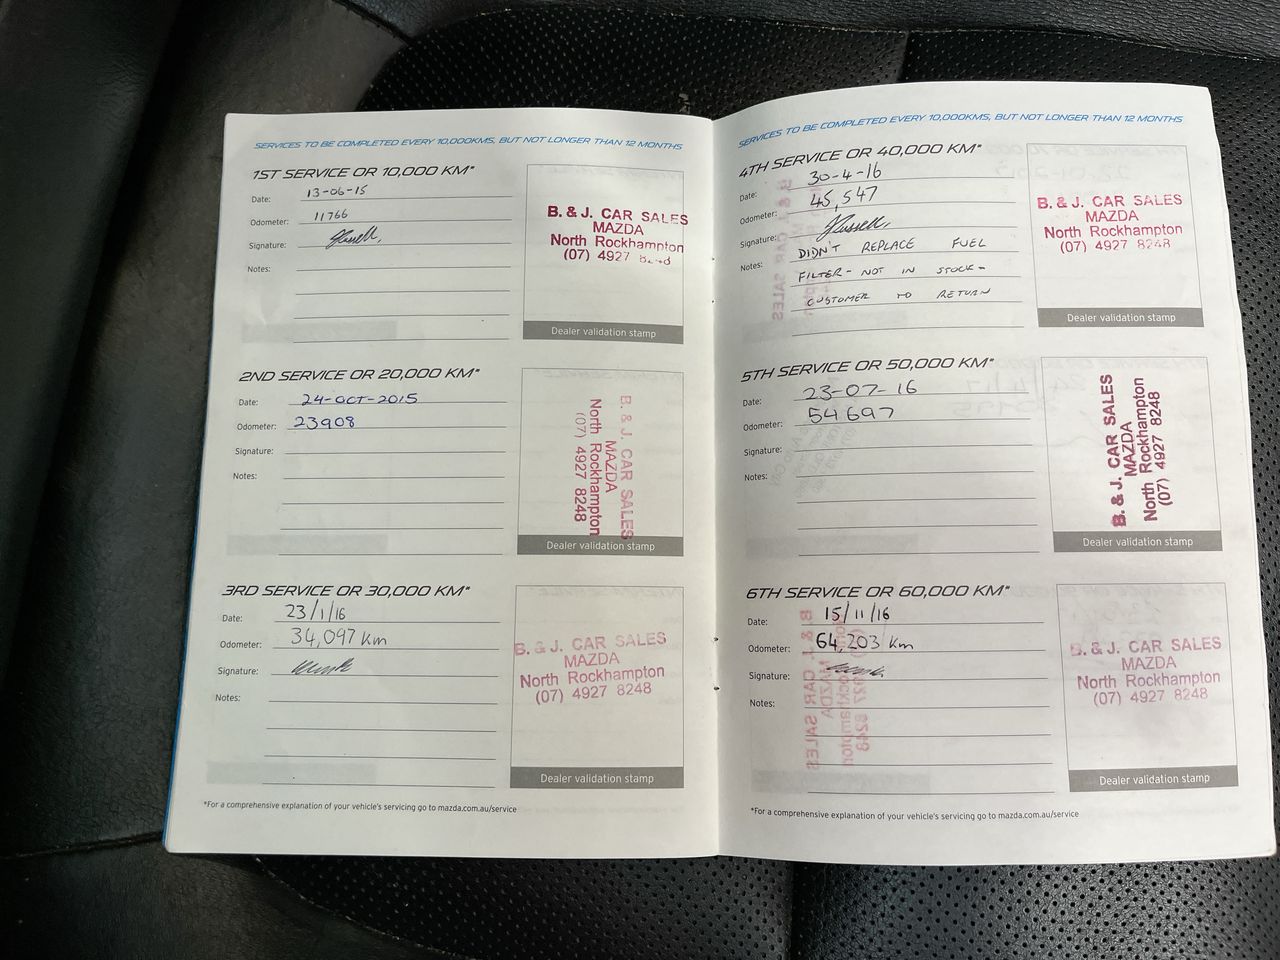 SERVICES TO BE COMPLETED EVERY 10,000KMS, BUT NOT LONGER THAN 12 MONTHS
1ST SERVICE OR 10,000 KM*
Date: 13-06-15
Odometer: 11766
Signature:
Notes:
B. & J. CAR SALES
MAZDA
North Rockhampton
(07) 4927 8248
Dealer validation stamp
2ND SERVICE OR 20,000 KM*
Date: 24-OCT-2015
Odometer: 23908
Signature:
Notes:
B. & J. CAR SALES
MAZDA
North Rockhampton
(07) 4927 8248
Dealer validation stamp
3RD SERVICE OR 30,000 KM*
Date: 23/1/16
Odometer: 34,097 Km
Signature:
Notes:
B. & J. CAR SALES
MAZDA
North Rockhampton
(07) 4927 8248
Dealer validation stamp
*For a comprehensive explanation of your vehicle's servicing go to mazda.com.au/service
SERVICES TO BE COMPLETED EVERY 10,000KMS, BUT NOT LONGER THAN 12 MONTHS
4TH SERVICE OR 40,000 KM*
Date: 30-4-16
Odometer: 45,547
Signature:
Notes: DIDN'T REPLACE FUEL
FILTER - NOT IN STOCK -
CUSTOMER TO RETURN
B. & J. CAR SALES
MAZDA
North Rockhampton
(07) 4927 8248
Dealer validation stamp
5TH SERVICE OR 50,000 KM*
Date: 23-07-16
Odometer: 54697
Signature:
Notes:
B. & J. CAR SALES
MAZDA
North Rockhampton
(07) 4927 8248
Dealer validation stamp
6TH SERVICE OR 60,000 KM*
Date: 15/11/16
Odometer: 64,203 Km
Signature:
Notes:
B. & J. CAR SALES
MAZDA
North Rockhampton
(07) 4927 8248
Dealer validation stamp
*For a comprehensive explanation of your vehicle's servicing go to mazda.com.au/service